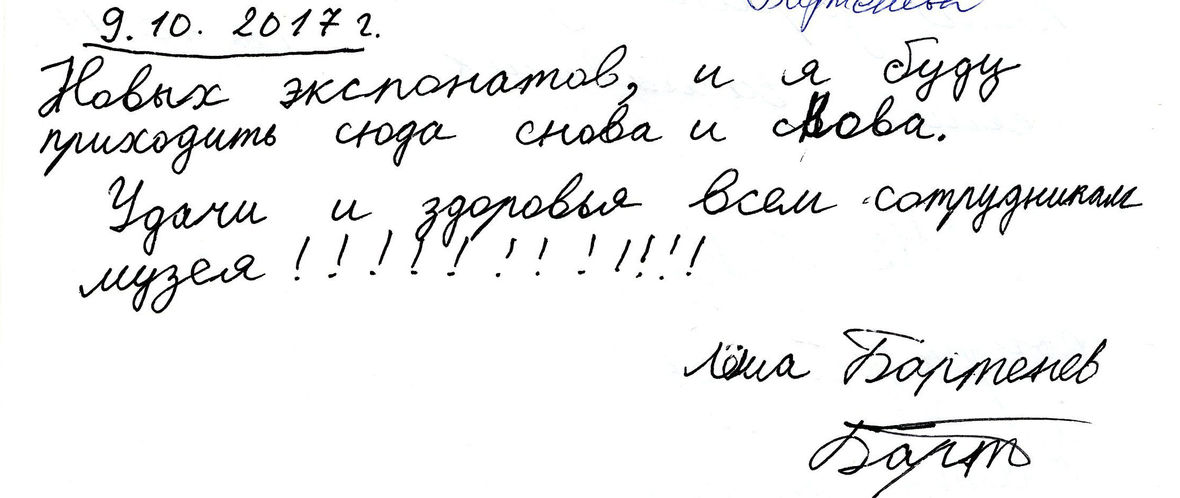 Бартенева
9.10.2017 г.
Новых экспонатов, и я буду
приходить сюда снова и снова.
Удачи и здоровья всем сотрудникам
музея !!!!!!!!!!!!!
Лёша Бартенев
Барт